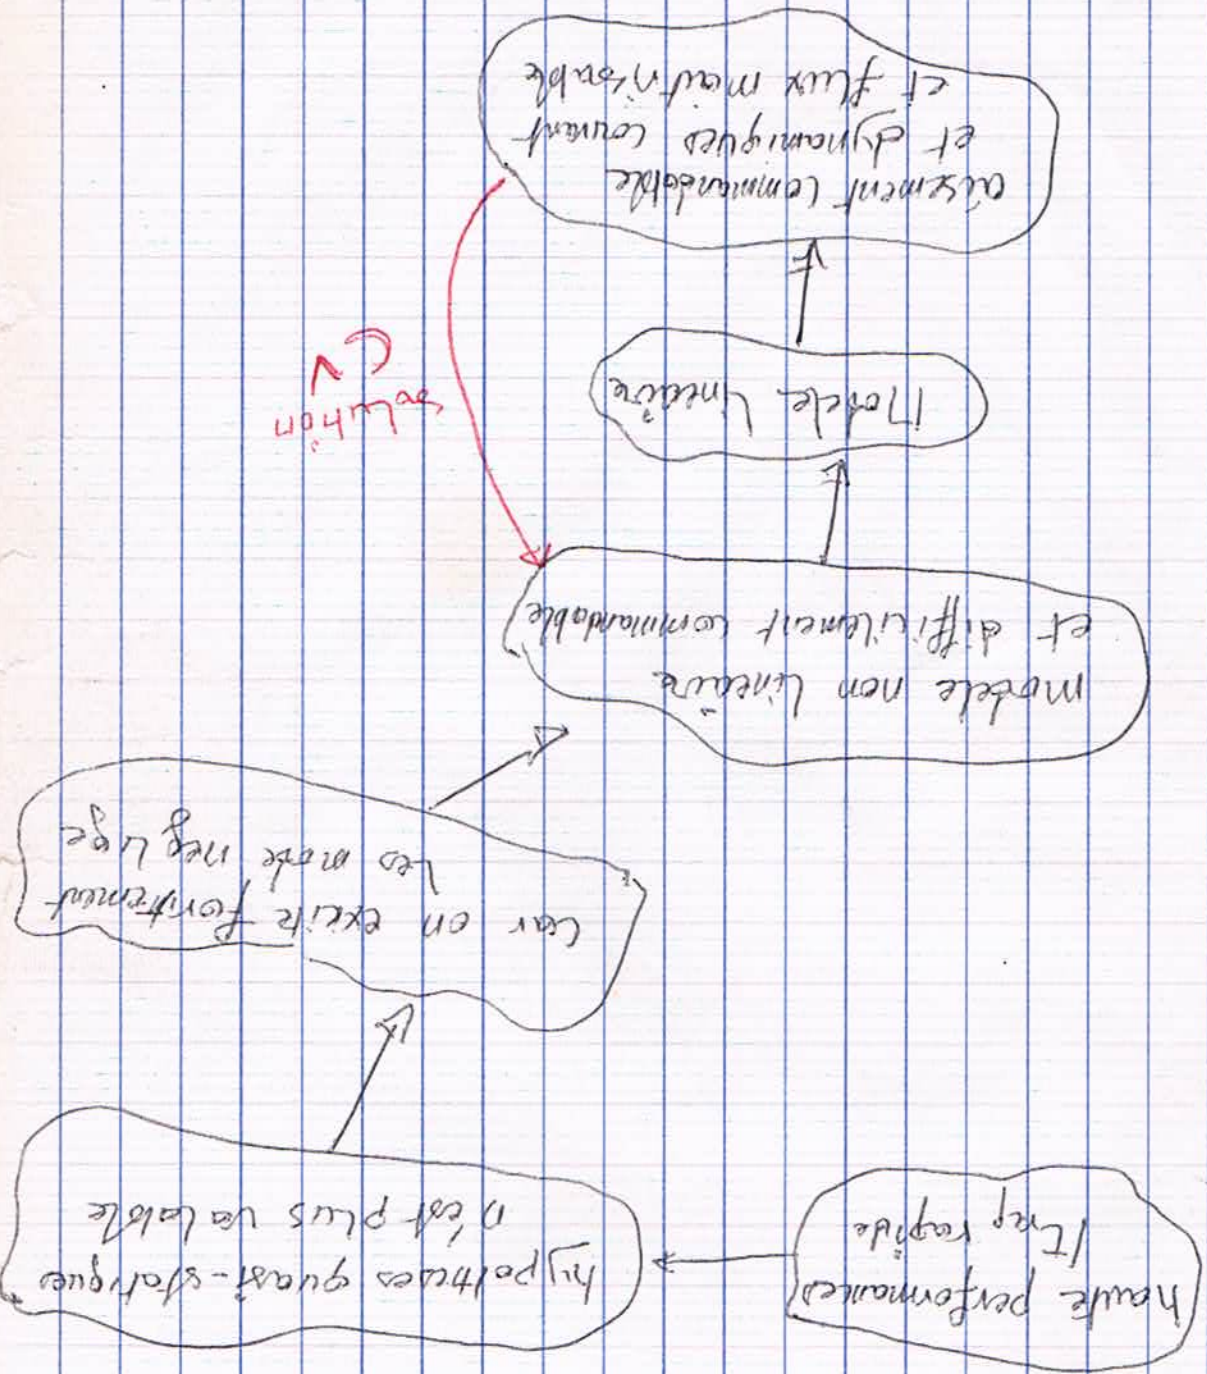 haute performances
/ trep rapide
hypotheses quasi-statique
n'est plus valable
car on excite fortement
les mode neglige
modele non lineaire
et difficilement commandable
Modele lineaire
aisement commandable
et dynamiques courant
et flux maitrisable
solution
CV